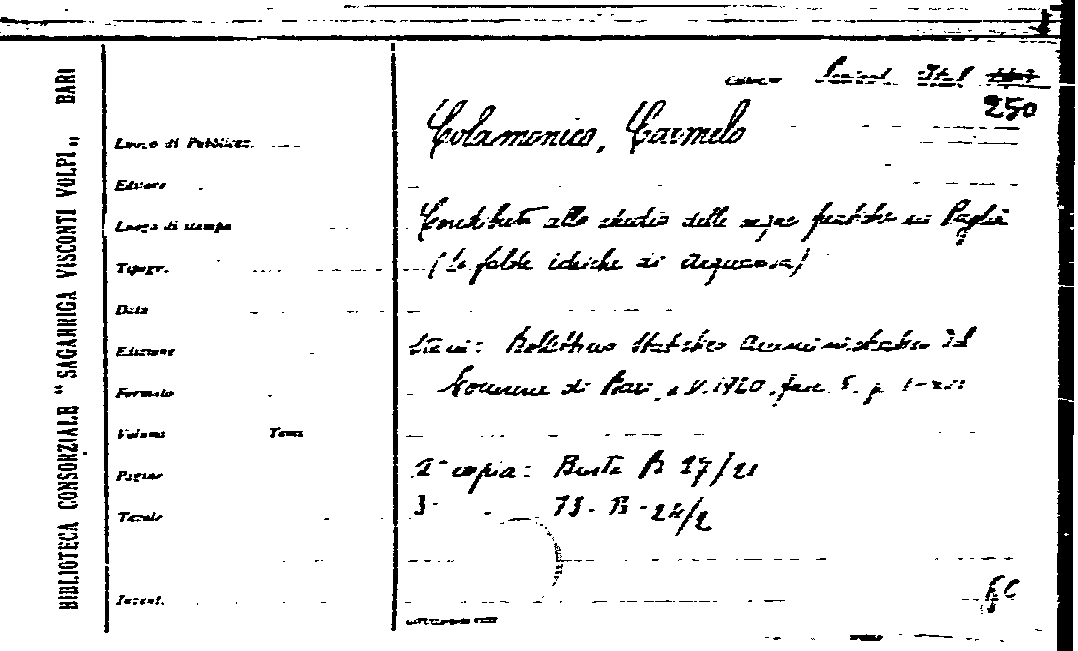 BIBLIOTECA CONSORZIALE " SAGARRIGA VISCONTI VOLPI „ BARI
250
Colamonico, Carmelo
Luogo di Pubblicaz.
Editore
Luogo di stampa
Contributi allo studio delle acque freatiche in Puglia
Tipogr.
(Le falde idriche di Acquaviva)
Data
Edizione
Bollettino Statistico Amministrativo del
Formato
Comune di Bari, a V. 1920, fasc. 5. p. 1-
Volume Tomo
Pagine
2ª copia: Busta B 27/21
Tavole
3- 73-B-24/2
Invent.